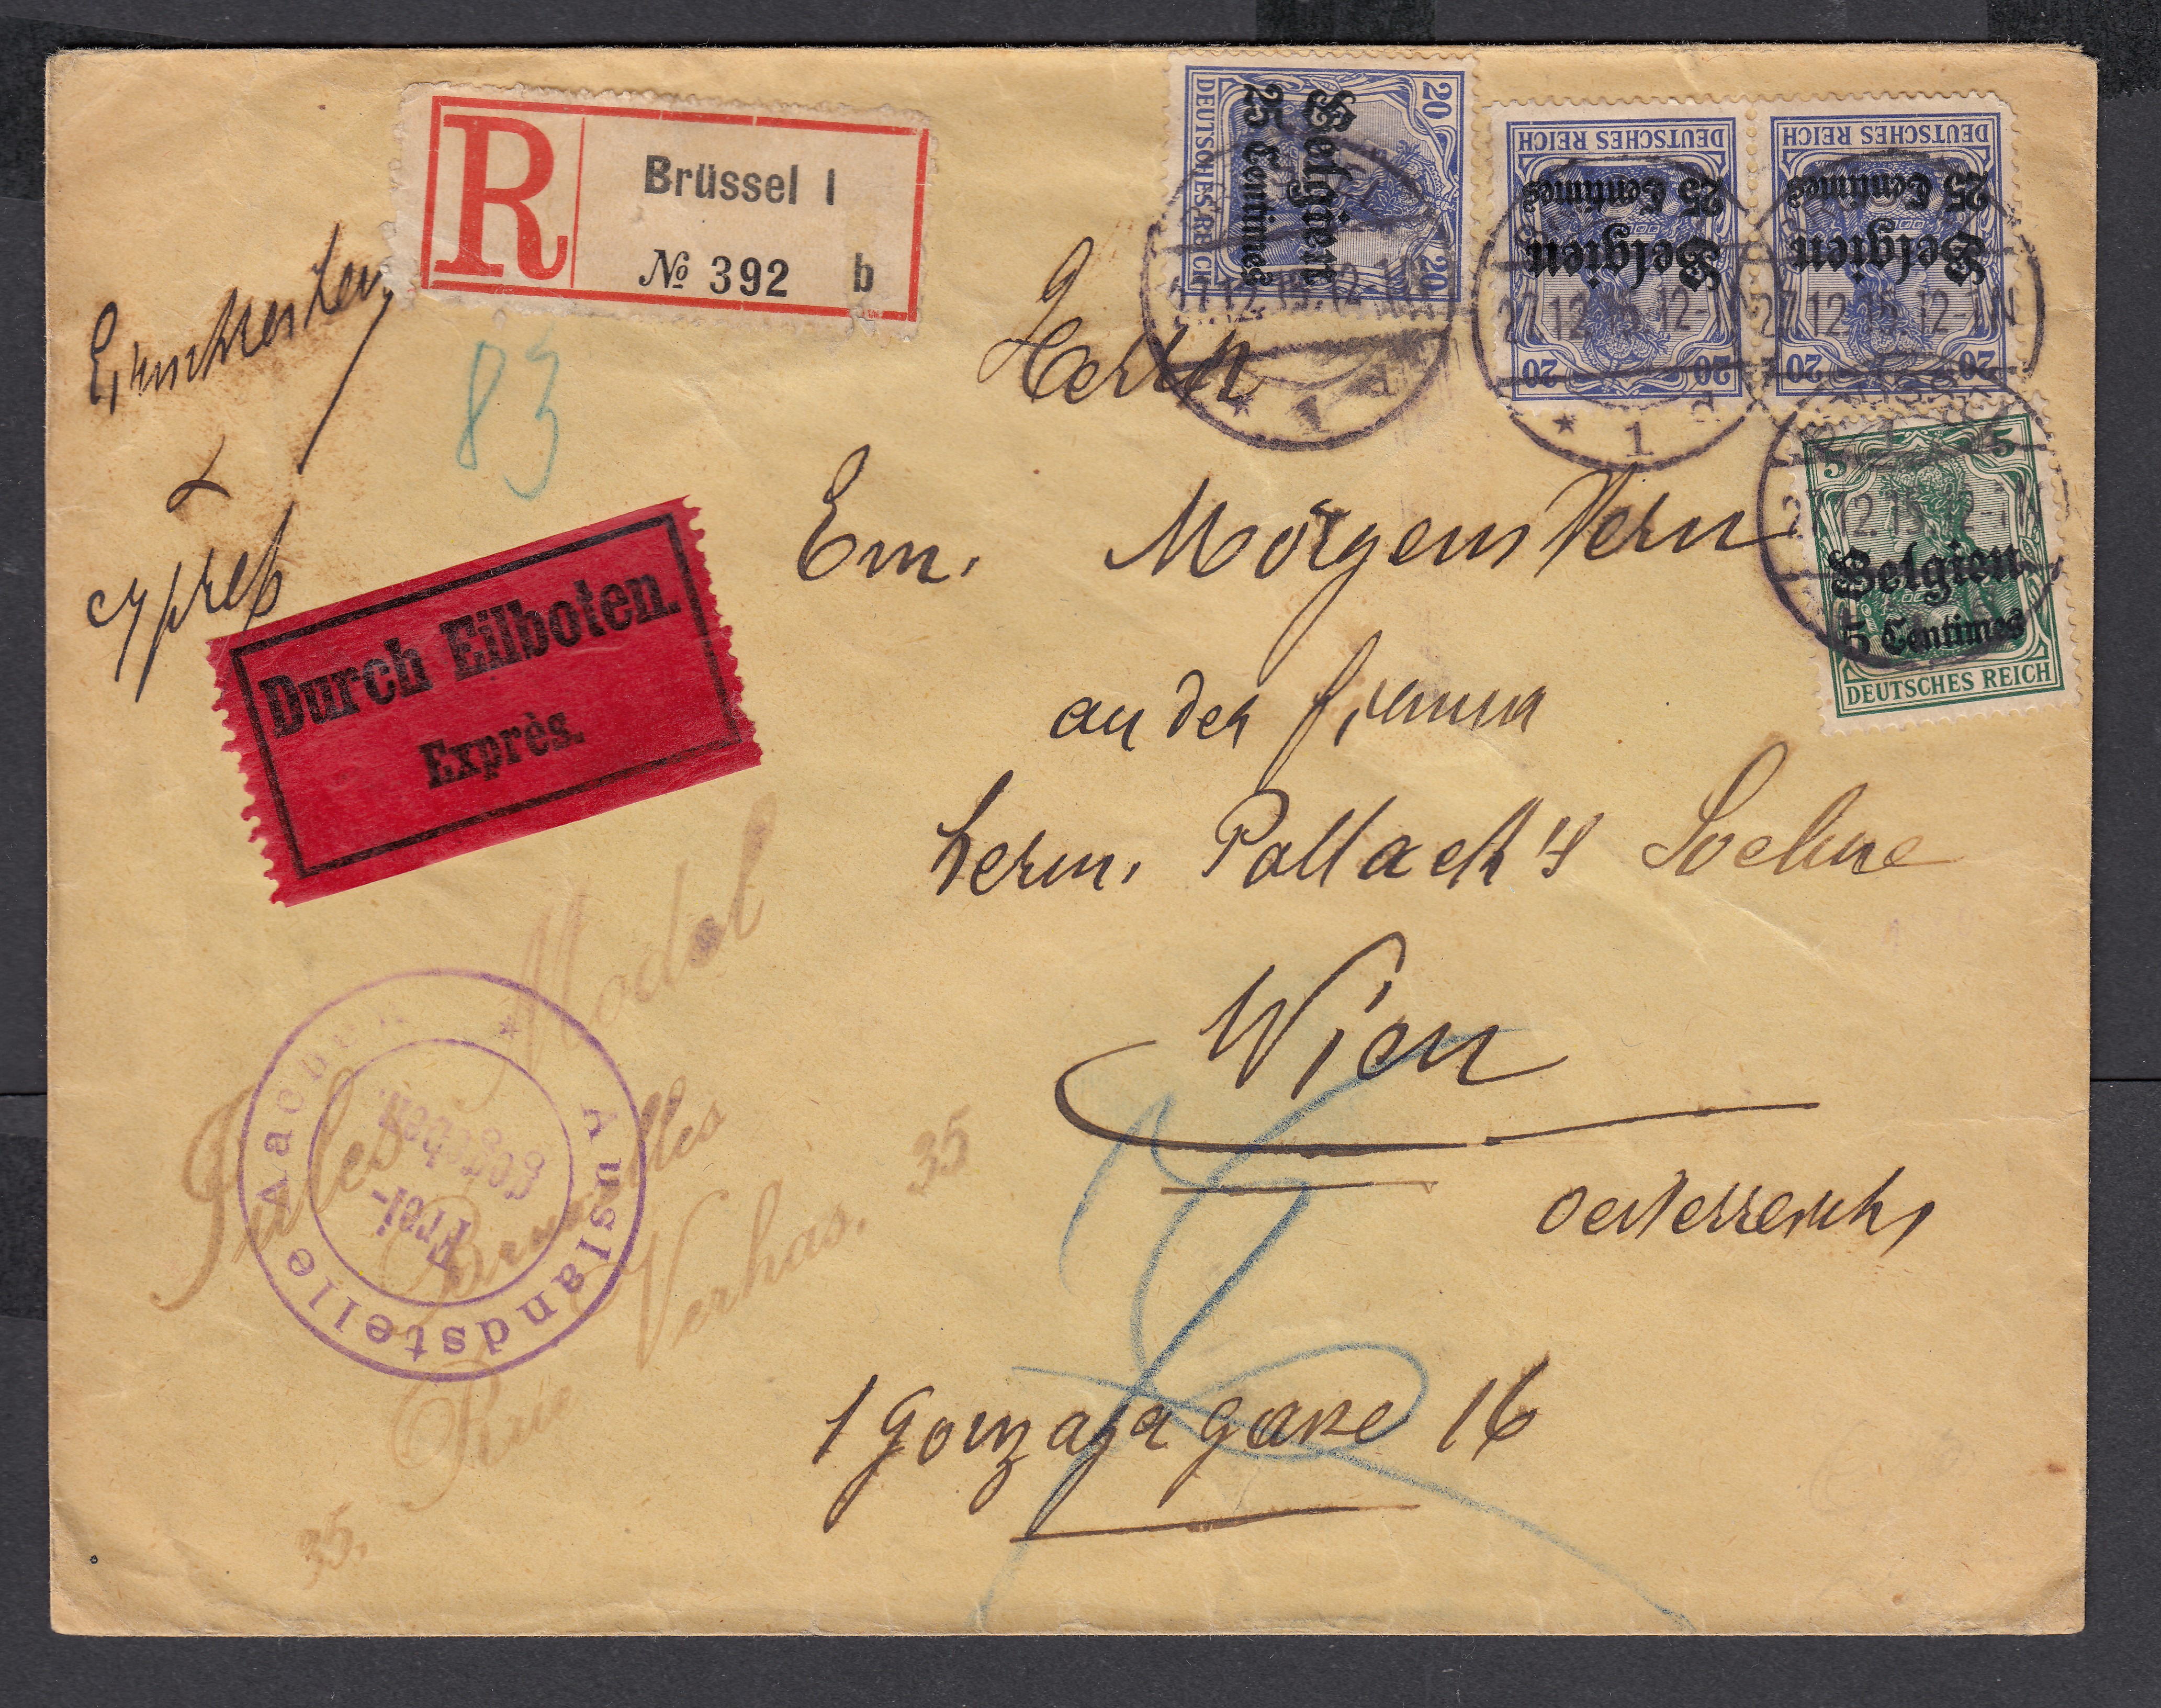 R
Brüssel 1
№ 392 b
Einschreiben
expreß
83
Durch Eilboten.
Exprès.
DEUTSCHES REICH
20 20
Belgien
25 Centimes
DEUTSCHES REICH
20 20
Belgien
25 Centimes
DEUTSCHES REICH
20 20
Belgien
25 Centimes
5 5
Belgien
5 Centimes
DEUTSCHES REICH
27.12.15.12-1N
* 1 d
27.12.15.12-1N
* 1 d
27.12.15.12-1N
27.12.15.12-1N
Herrn
Em. Morgenstern
an der Firma
Herm. Pollack's Soehne
Wien
Oesterreich
1 Gonzagagasse 16
Auslandstelle Aachen *
Frei-
gegeben.
Jules Model
Bruxelles
35. Rue Verhas. 35